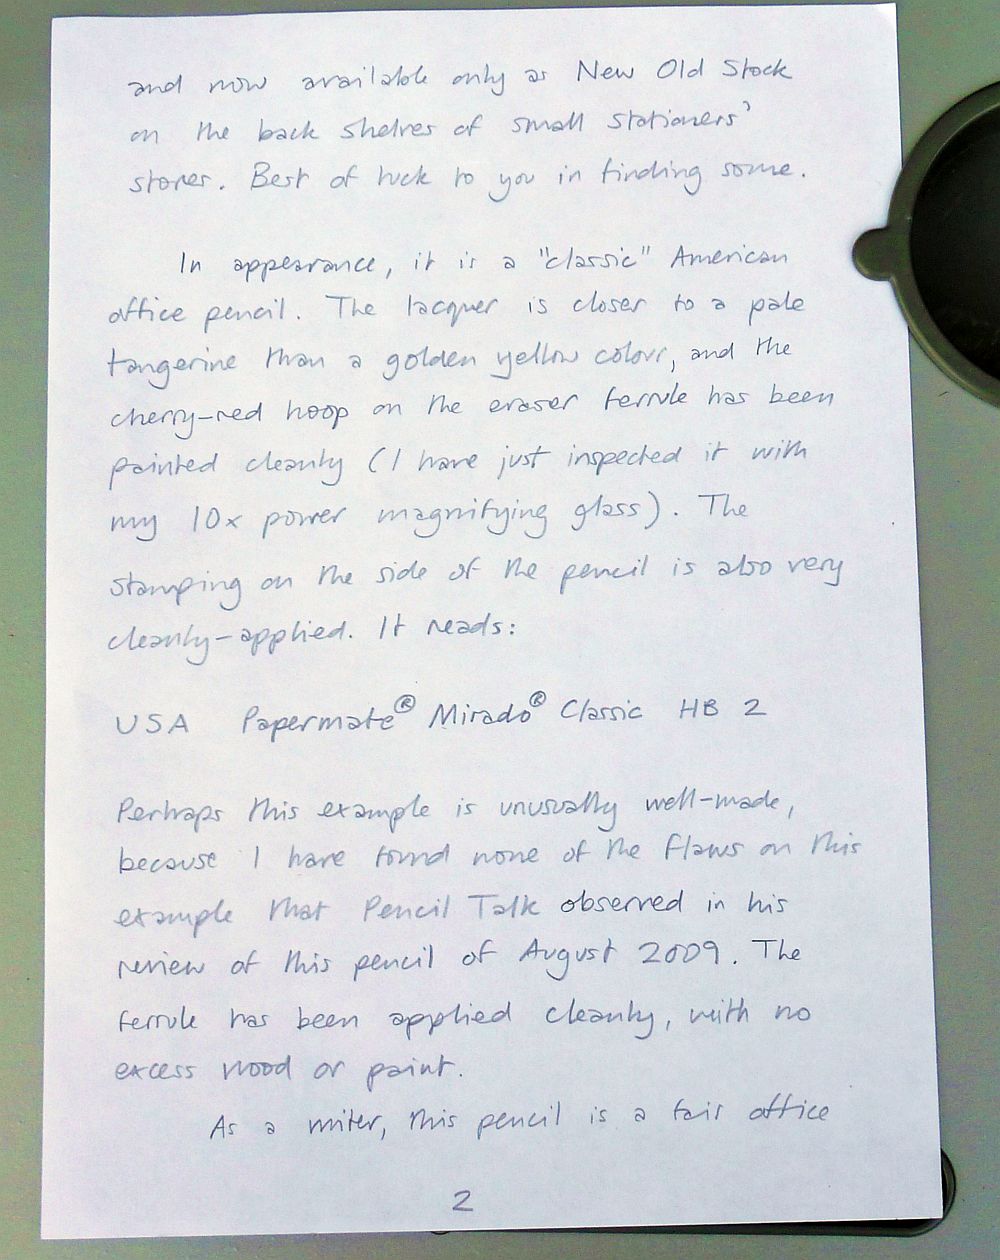 and now available only as New Old Stock
on the back shelves of small stationers'
stores. Best of luck to you in finding some.
In appearance, it is a "classic" American
office pencil. The lacquer is closer to a pale
tangerine than a golden yellow colour, and the
cherry-red hoop on the eraser ferrule has been
painted cleanly (I have just inspected it with
my 10x power magnifying glass). The
stamping on the side of the pencil is also very
cleanly-applied. It reads:
USA Papermate® Mirado® Classic HB 2
Perhaps this example is unusually well-made,
because I have found none of the flaws on this
example that Pencil Talk observed in his
review of this pencil of August 2009. The
ferrule has been applied cleanly, with no
excess wood or paint.
As a writer, this pencil is a fair office
2